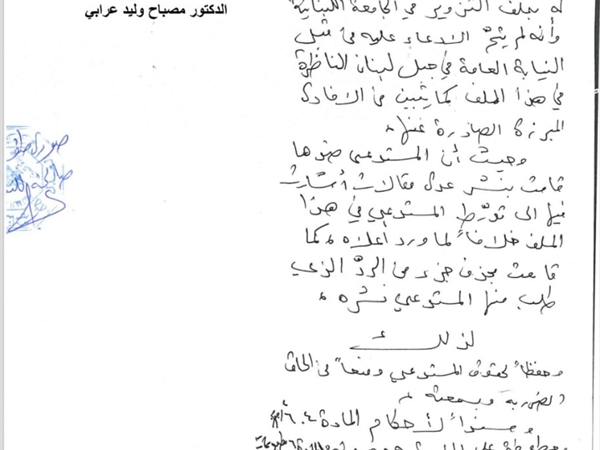 الدكتور مصباح وليد عرابي
له بملف التزوير في الجامعة اللبنانية
وأنه لم يتمّ الادعاء عليه من قبل
النيابة العامة في جبل لبنان الناظرة
في هذا الملف كما يتبين من الافادة
المبرزة الصادرة عنها،
وحيث أن المستدعى ضدها
قامت بنشر عدة مقالات أشارت
فيها الى تورّط المستدعي في هذا
الملف خلافاً لما ورد أعلاه، كما
قامت بحذف جزء من الردّ الذي
طلب منها المستدعي نشره،
لذلك
وحفظاً لحقوق المستدعي ومنعاً من الحاق
الضرر به وبسمعته،
وسنداً لأحكام المادة ٦٠٤
صورة